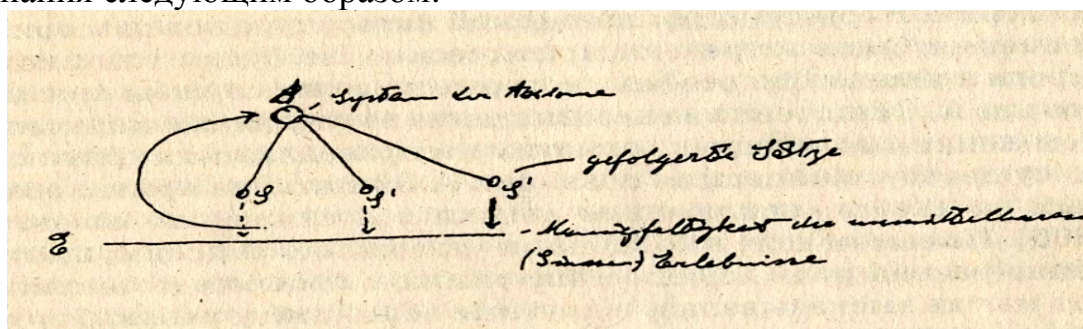 нания следующим образом:
A
System der Axiome
gefolgerte Sätze
S S' S''
E Mannigfaltigkeit der unmittelbaren
(Sinnes) Erlebnisse